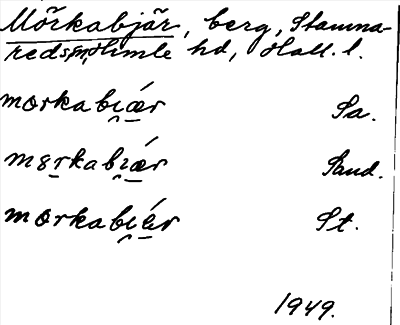 Mörkabjär, berg, Stamna-
reds sn, Himle hd, Hall. l.
morkabı̯ǽr Sa.
mɞrkabı̯ǽr Sand.
morkabı̯ǽr St.
1949.